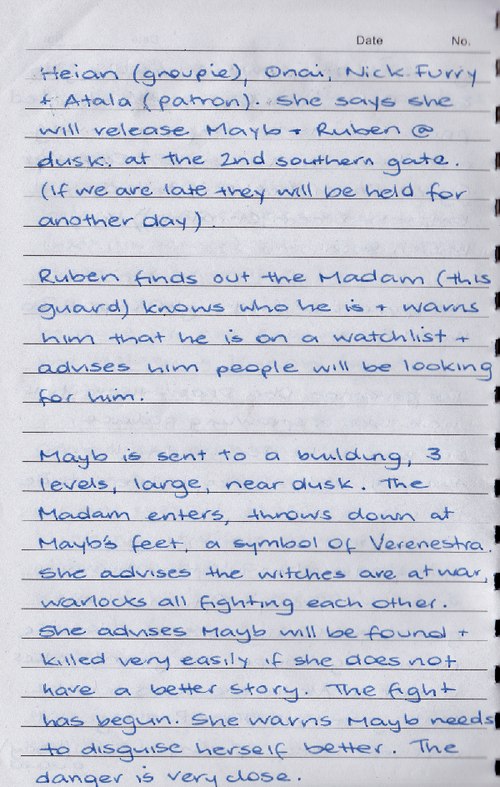 Date No.
Heian (groupie), Onai, Nick Furry
+ Atala (patron). She says she
will release Mayb + Ruben @
dusk. at the 2nd southern gate.
(If we are late they will be held for
another day).
Ruben finds out the Madam (this
guard) knows who he is + warns
him that he is on a watchlist +
advises him people will be looking
for him.
Mayb is sent to a building, 3
levels, large, near dusk. The
Madam enters, throws down at
Mayb's feet, a symbol of Verenestra.
She advises the witches are at war,
warlocks all fighting each other.
She advises Mayb will be found +
killed very easily if she does not
have a better story. The fight
has begun. She warns Mayb needs
to disguise herself better. The
danger is very close.